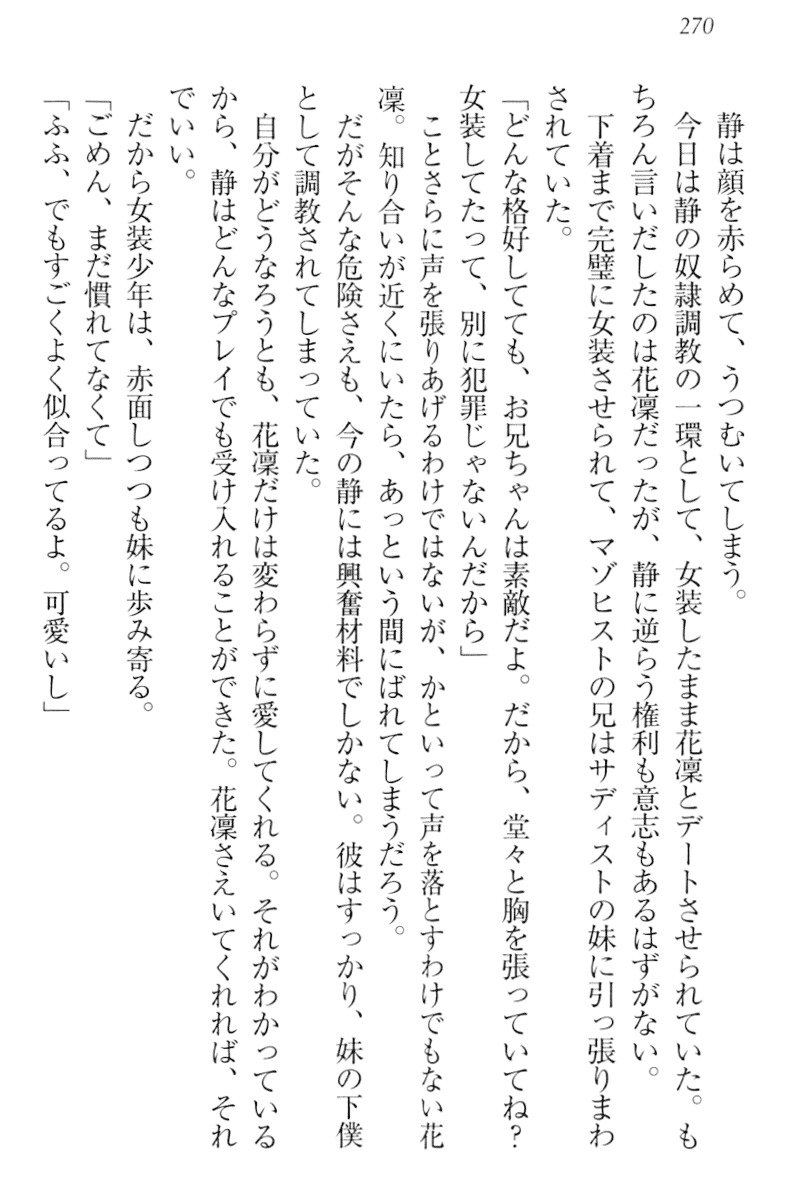 270
静は顔を赤らめて、うつむいてしまう。
今日は静の奴隷調教の一環として、女装したまま花凛とデートさせられていた。も
ちろん言いだしたのは花凛だったが、静に逆らう権利も意志もあるはずがない。
下着まで完璧に女装させられて、マゾヒストの兄はサディストの妹に引っ張りまわ
されていた。
「どんな格好してても、お兄ちゃんは素敵だよ。だから、堂々と胸を張っていてね？
女装してたって、別に犯罪じゃないんだから」
ことさらに声を張りあげるわけではないが、かといって声を落とすわけでもない花
凛。知り合いが近くにいたら、あっという間にばれてしまうだろう。
だがそんな危険さえも、今の静には興奮材料でしかない。彼はすっかり、妹の下僕
として調教されてしまっていた。
自分がどうなろうとも、花凛だけは変わらずに愛してくれる。それがわかっている
から、静はどんなプレイでも受け入れることができた。花凛さえいてくれれば、それ
でいい。
だから女装少年は、赤面しつつも妹に歩み寄る。
「ごめん、まだ慣れてなくて」
「ふふ、でもすごくよく似合ってるよ。可愛いし」